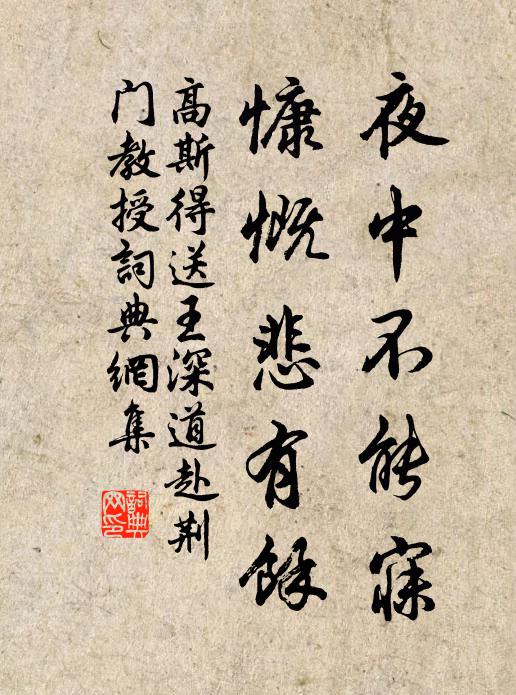 夜中不能寐
慷慨悲有餘
高斯得送王深道赴荆
门教授詞典網集
詞典网印